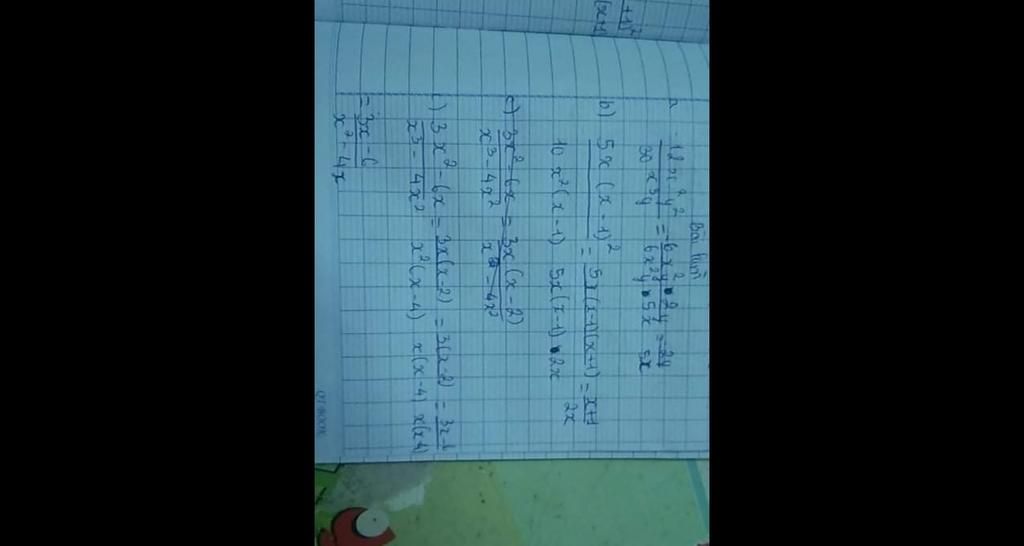 Bài làm
a 12x²y² / 30x³y = 6x²y.2y / 6x²y.5x = 2y / 5x
b) 5x(x-1)² / 10x²(x-1) = 5x(x-1)(x+1) / 5x(x-1).2x = x+1 / 2x
c) 3x²-6x / x³-4x² = 3x(x-2) / x³-4x²
c) 3x²-6x / x³-4x² = 3x(x-2) / x²(x-4) = 3(x-2) / x(x-4) = 3x-6 / x(x-4)
= 3x-6 / x²-4x